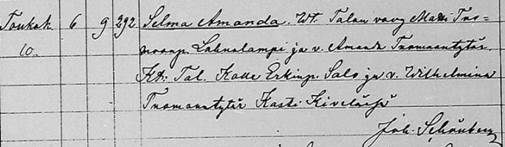 Toukok. 6 9 292. Selma Amanda. Wt. Talon vävy Matti Tuo-
10. maanp. Lahnalampi ja v. Amanda Tuomaantytär.
Kti. Tal. Kalle Erkinp. Salo ja v. Wilhelmina
Tuomaantytär Kasti Kivelästä
Joh. Schönberg